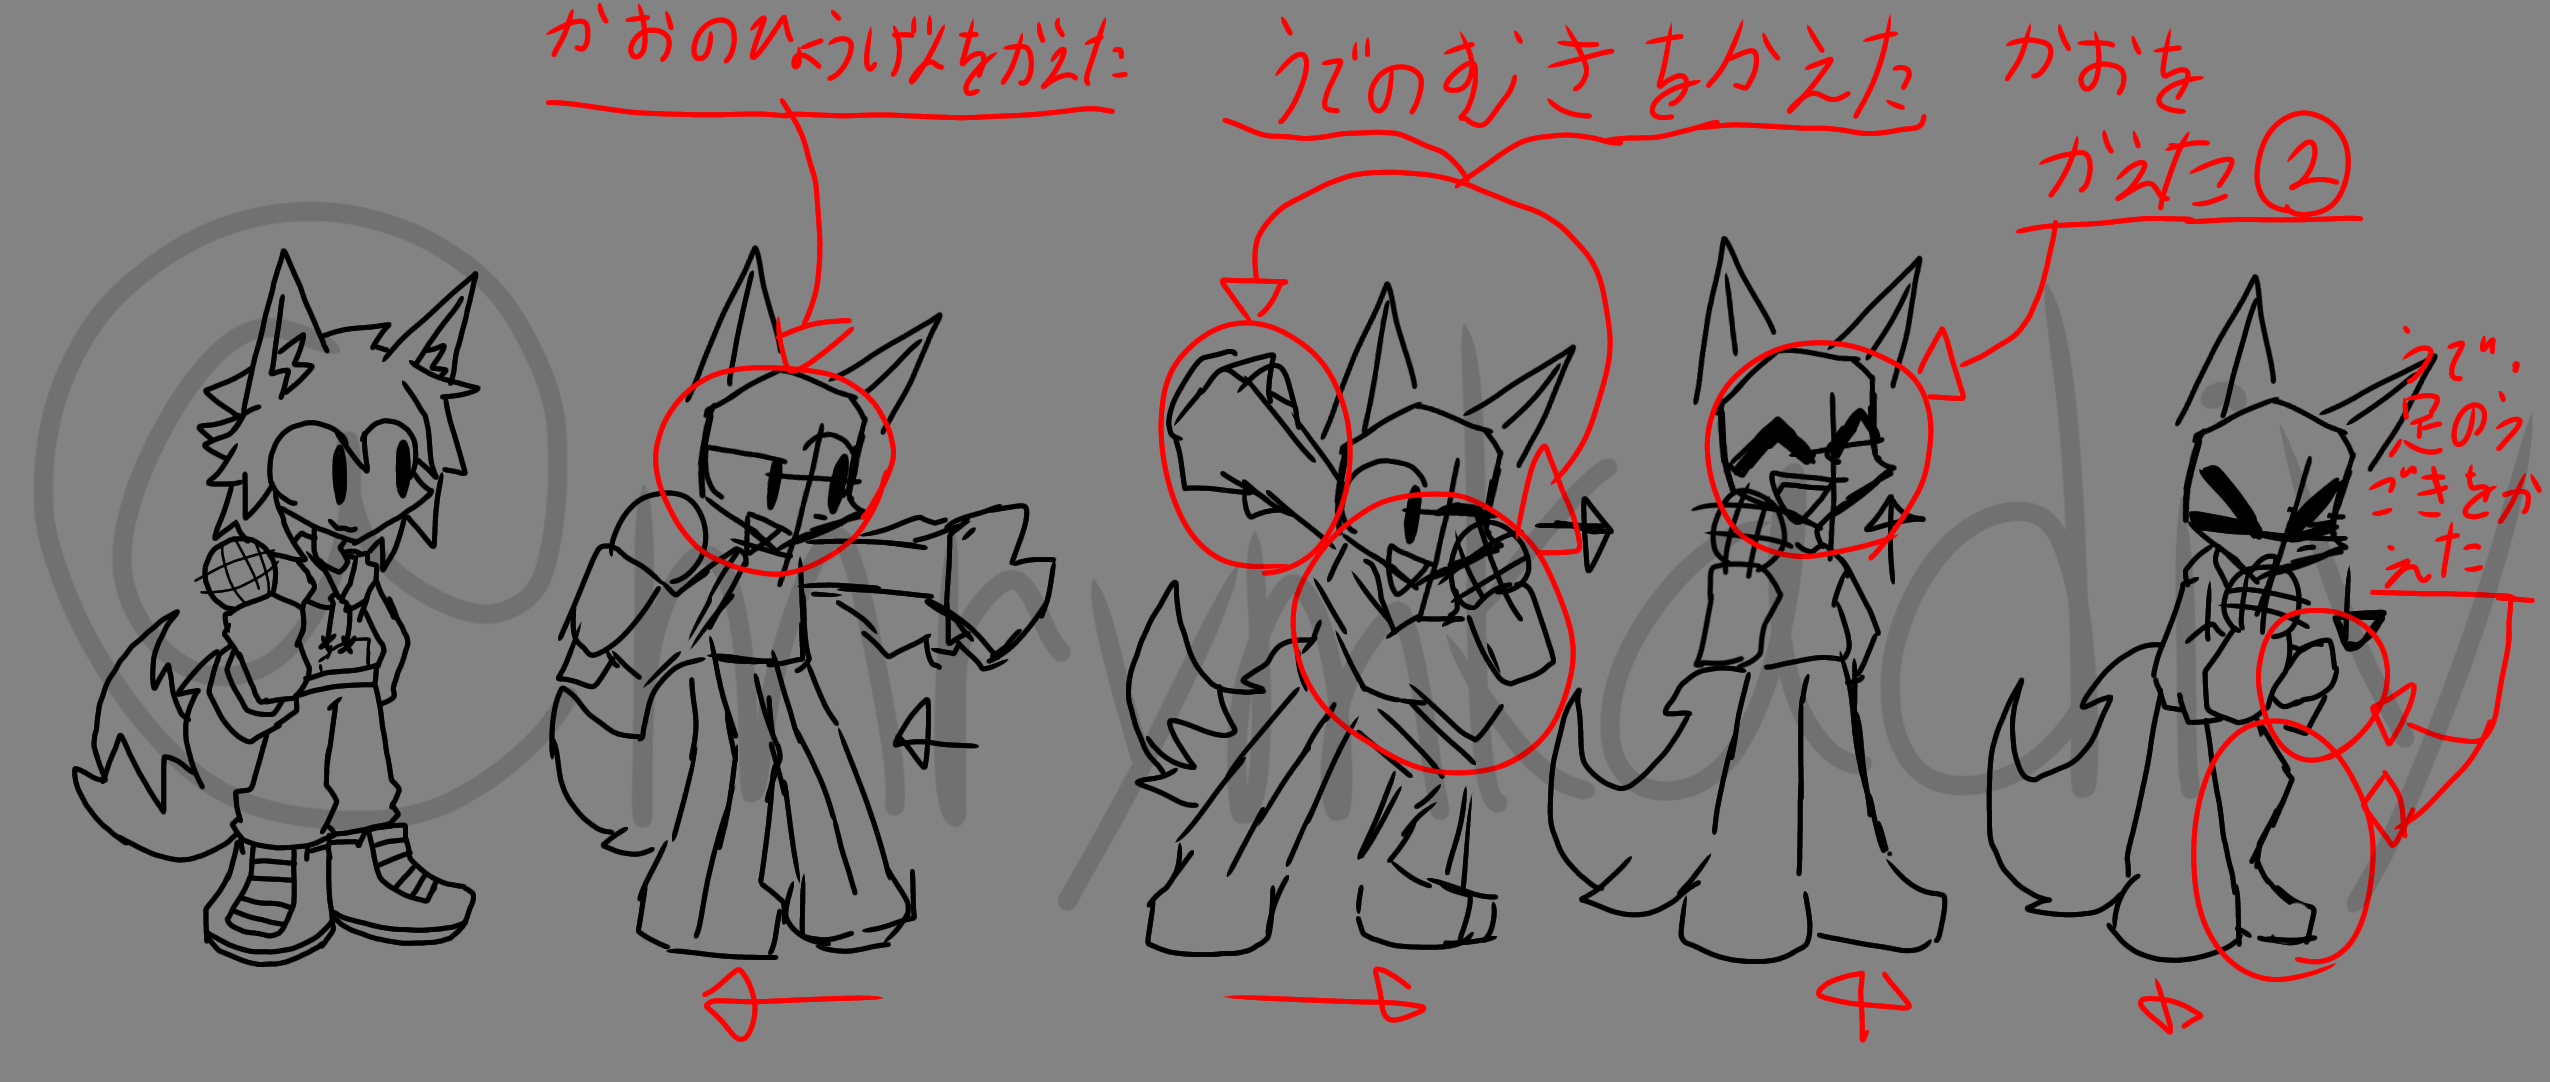 かおのひょうげんをかえた
うでのむきをかえた
かおを
かえた②
うで、
足のう
ごきをか
えた